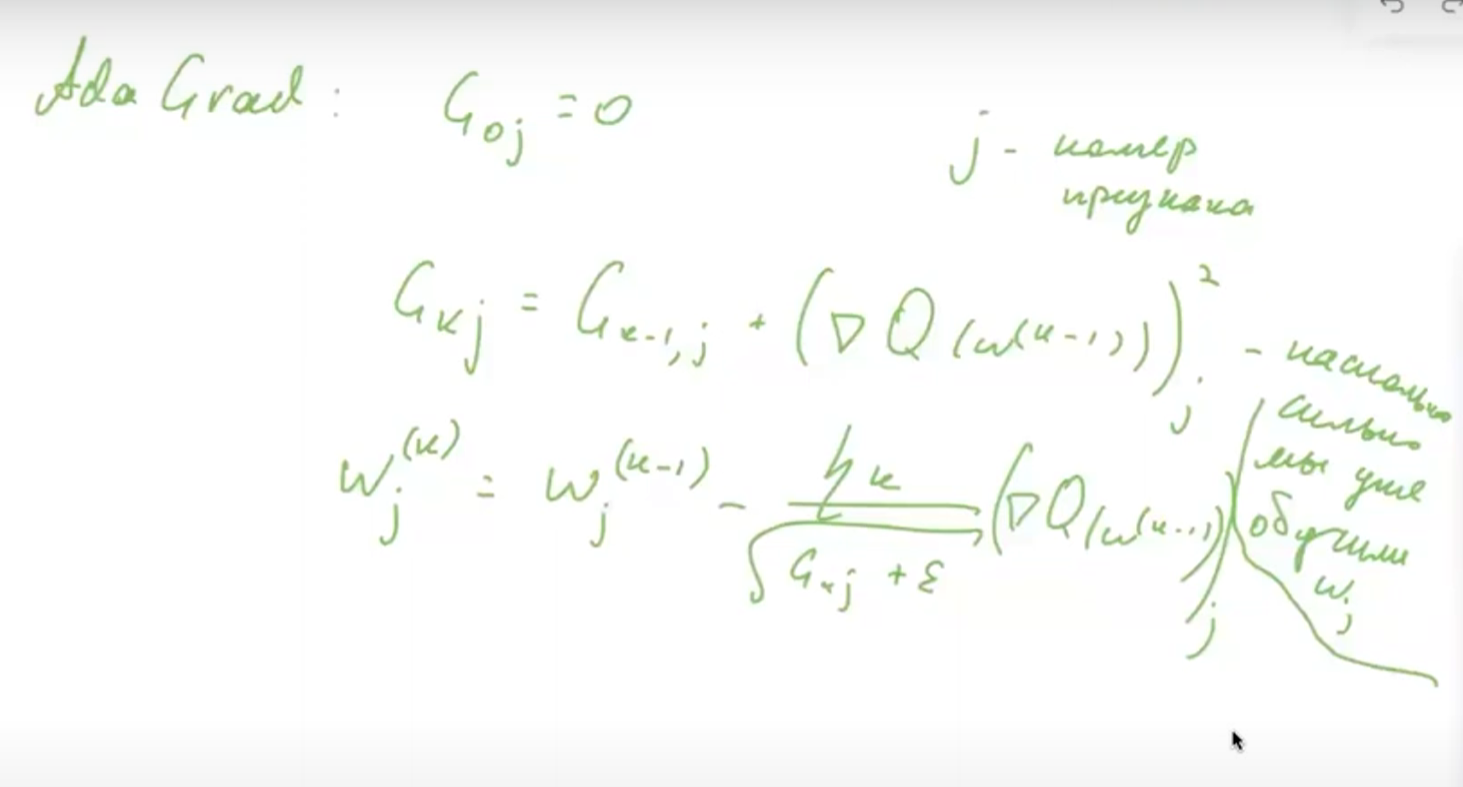 AdaGrad: G₀ⱼ = 0
j - номер
признака
Gₖⱼ = Gₖ₋₁,ⱼ + (∇Q(w⁽ᵏ⁻¹⁾))ⱼ² - насколько
сильно
мы уже
обучили
wⱼ
wⱼ⁽ᵏ⁾ = wⱼ⁽ᵏ⁻¹⁾ - ηₖ / √(Gₖⱼ + ε) (∇Q(w⁽ᵏ⁻¹⁾))ⱼ